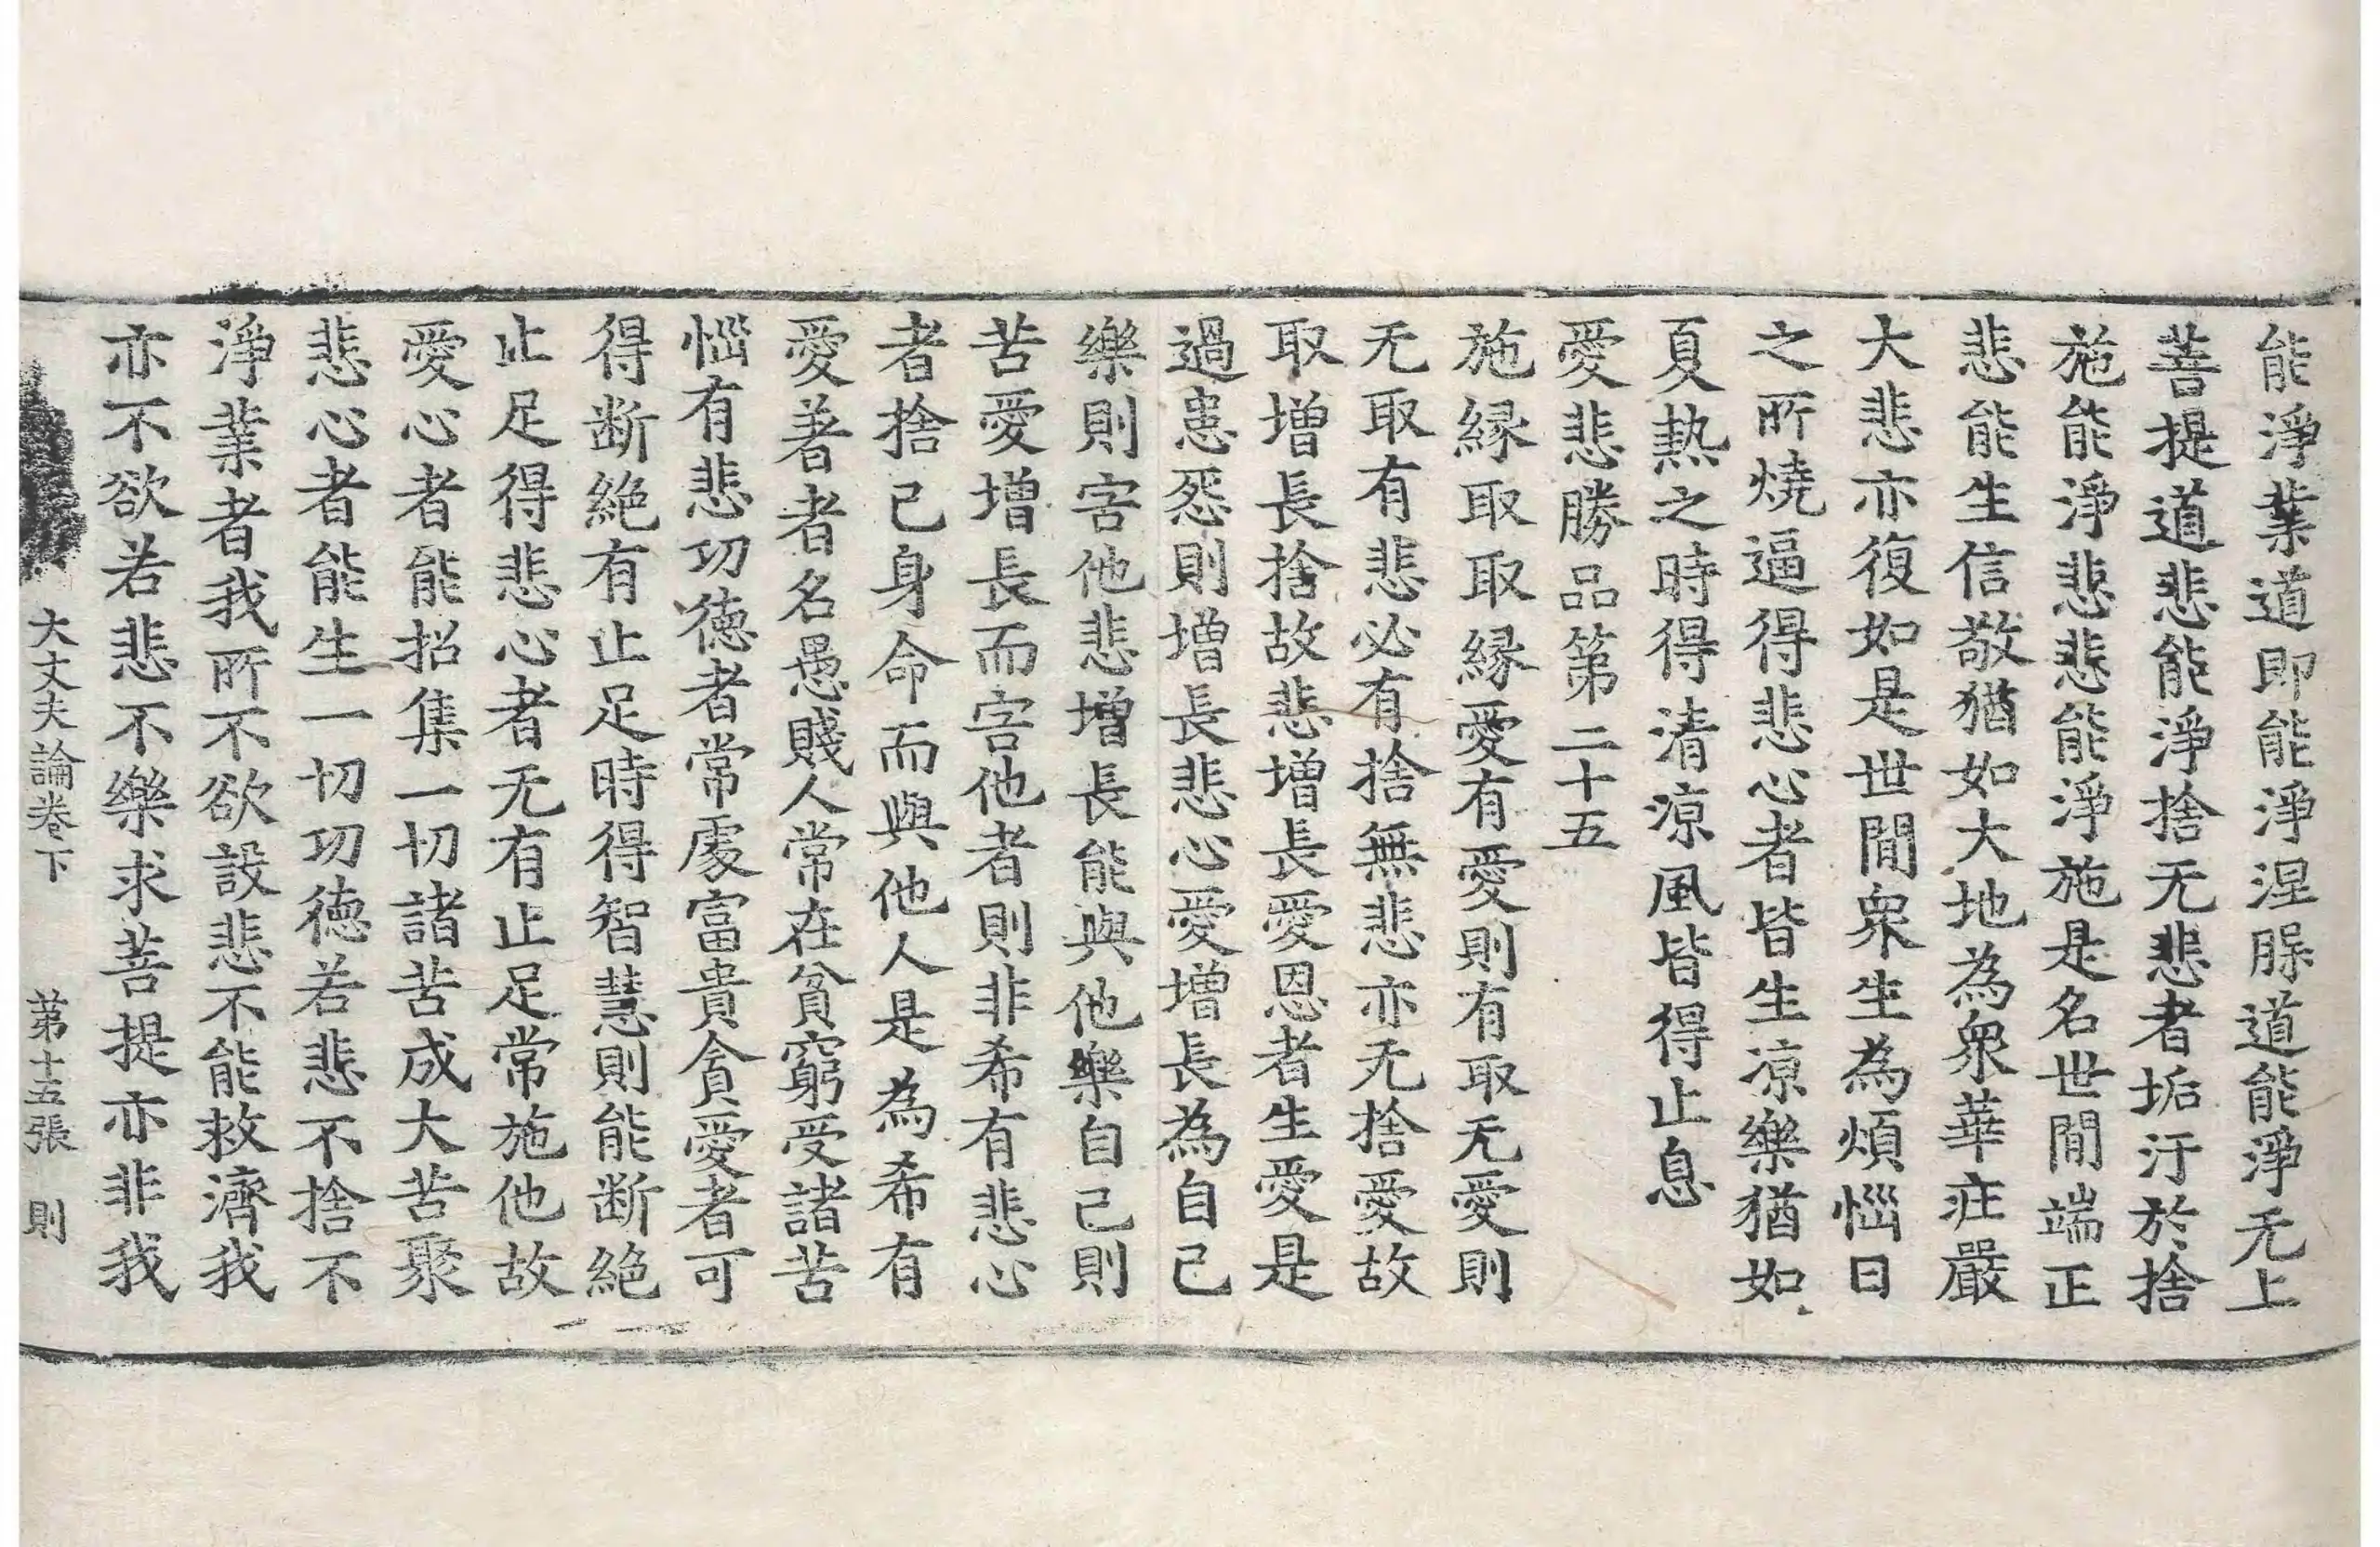 能淨業道即能淨涅脲道能淨无上
菩提道悲能淨捨无悲者垢汙於捨
施能淨悲悲能淨施是名世間端正
悲能生信敬猶如大地為衆華疘嚴
大悲亦復如是世間衆生為煩惱日
之所燒逼得悲心者皆生涼樂猶如
夏熱之時得清涼風皆得止息
愛悲勝品第二十五
施縁取取縁愛有愛則有取无愛則
无取有悲必有捨無悲亦无捨愛故
取增長捨故悲增長愛恩者生愛是
過患怨則增長悲心愛增長為自己
樂則害他悲增長能與他樂自己則
苦愛增長而害他者則非希有悲心
者捨己身命而與他人是為希有
愛著者名愚賤人常在貧窮受諸苦
惱有悲功德者常處富貴貪愛者可
得断絶有止足時得智慧則能断絶
止足得悲心者无有止足常施他故
愛心者能招集一切諸苦成大苦聚
悲心者能生一切功德若悲不捨不
淨業者我所不欲設悲不能救濟我
亦不欲若悲不樂求菩提亦非我
大丈夫論卷下 第十五張 則